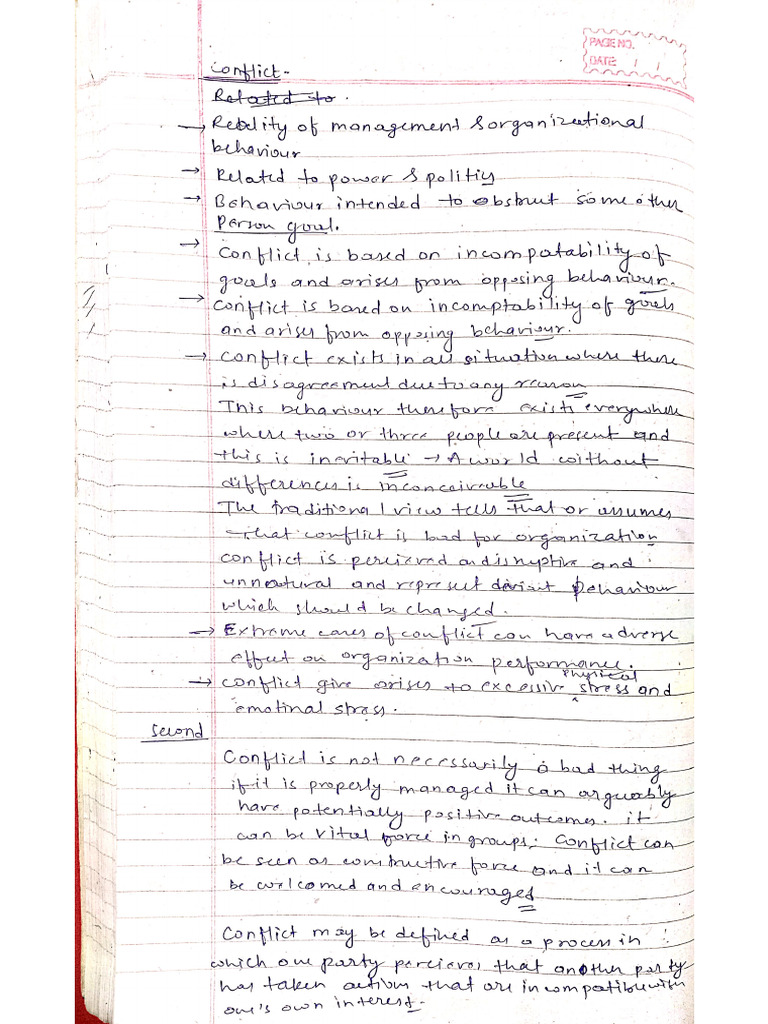 PAGE NO.
DATE: / /
Conflict-
Related to.
→ Reality of management & organizational
behaviour
→ Related to power & politiy
→ Behaviour intended to obstruct some other
Person goal.
→ Conflict is based on incompatability of
goals and arises from opposing behaviour.
→ Conflict is based on incomptability of goals
and arises from opposing behaviour.
→ Conflict exists in all situation where there
is disagreement due to any reason
This behaviour therefore exists everywhere
where two or three people are present and
this is inevitable → A world without
differences is inconceivable
The traditional view tells that or assumes
that conflict is bad for organization
conflict is percieved as disruptive and
unnatural and represent deviant behaviour
which should be changed.
→ Extreme cases of conflict can have adverse
effect on organization performance.
→ conflict give arises to excessive physical stress and
emotinal stress.
Second
Conflict is not necessarily a bad thing
if it is properly managed it can arguably
have potentially positive outcomes. it
can be vital force in groups; Conflict can
be seen as constructive force and it can
be welcomed and encourages
Conflict may be defined as a process in
which one party percieves that another party
has taken action that are incompatible with
one's own interest.